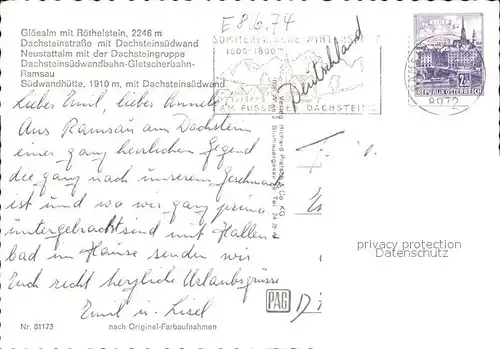 Glösalm mit Röthelstein, 2246 m
Dachsteinstraße mit Dachsteinsüdwand
Neustattalm mit der Dachsteingruppe
Dachsteinsüdwandbahn-Gletscherbahn-
Ramsau
Südwandhütte, 1910 m, mit Dachsteinsüdwand
E 8.6.74
SOMMERFRISCHE WINTERS
1000-1800m
AM FUSSE DES DACHSTEINS
Deutschland
REPUBLIK ÖSTERREICH
8972
Lieber Emil, liebe Annel
Aus Ramsau am Dachstein
einer ganz herrlichen Gegend
die ganz nach unserem Geschmack
ist und wo wir ganz prima
untergebracht sind mit Hallen
bad im Hause senden wir
Euch recht herzliche Urlaubsgrüsse
Emil u. Lisel
privacy protection
Datenschutz
PAG
Nr. 81173
nach Original-Farbaufnahmen